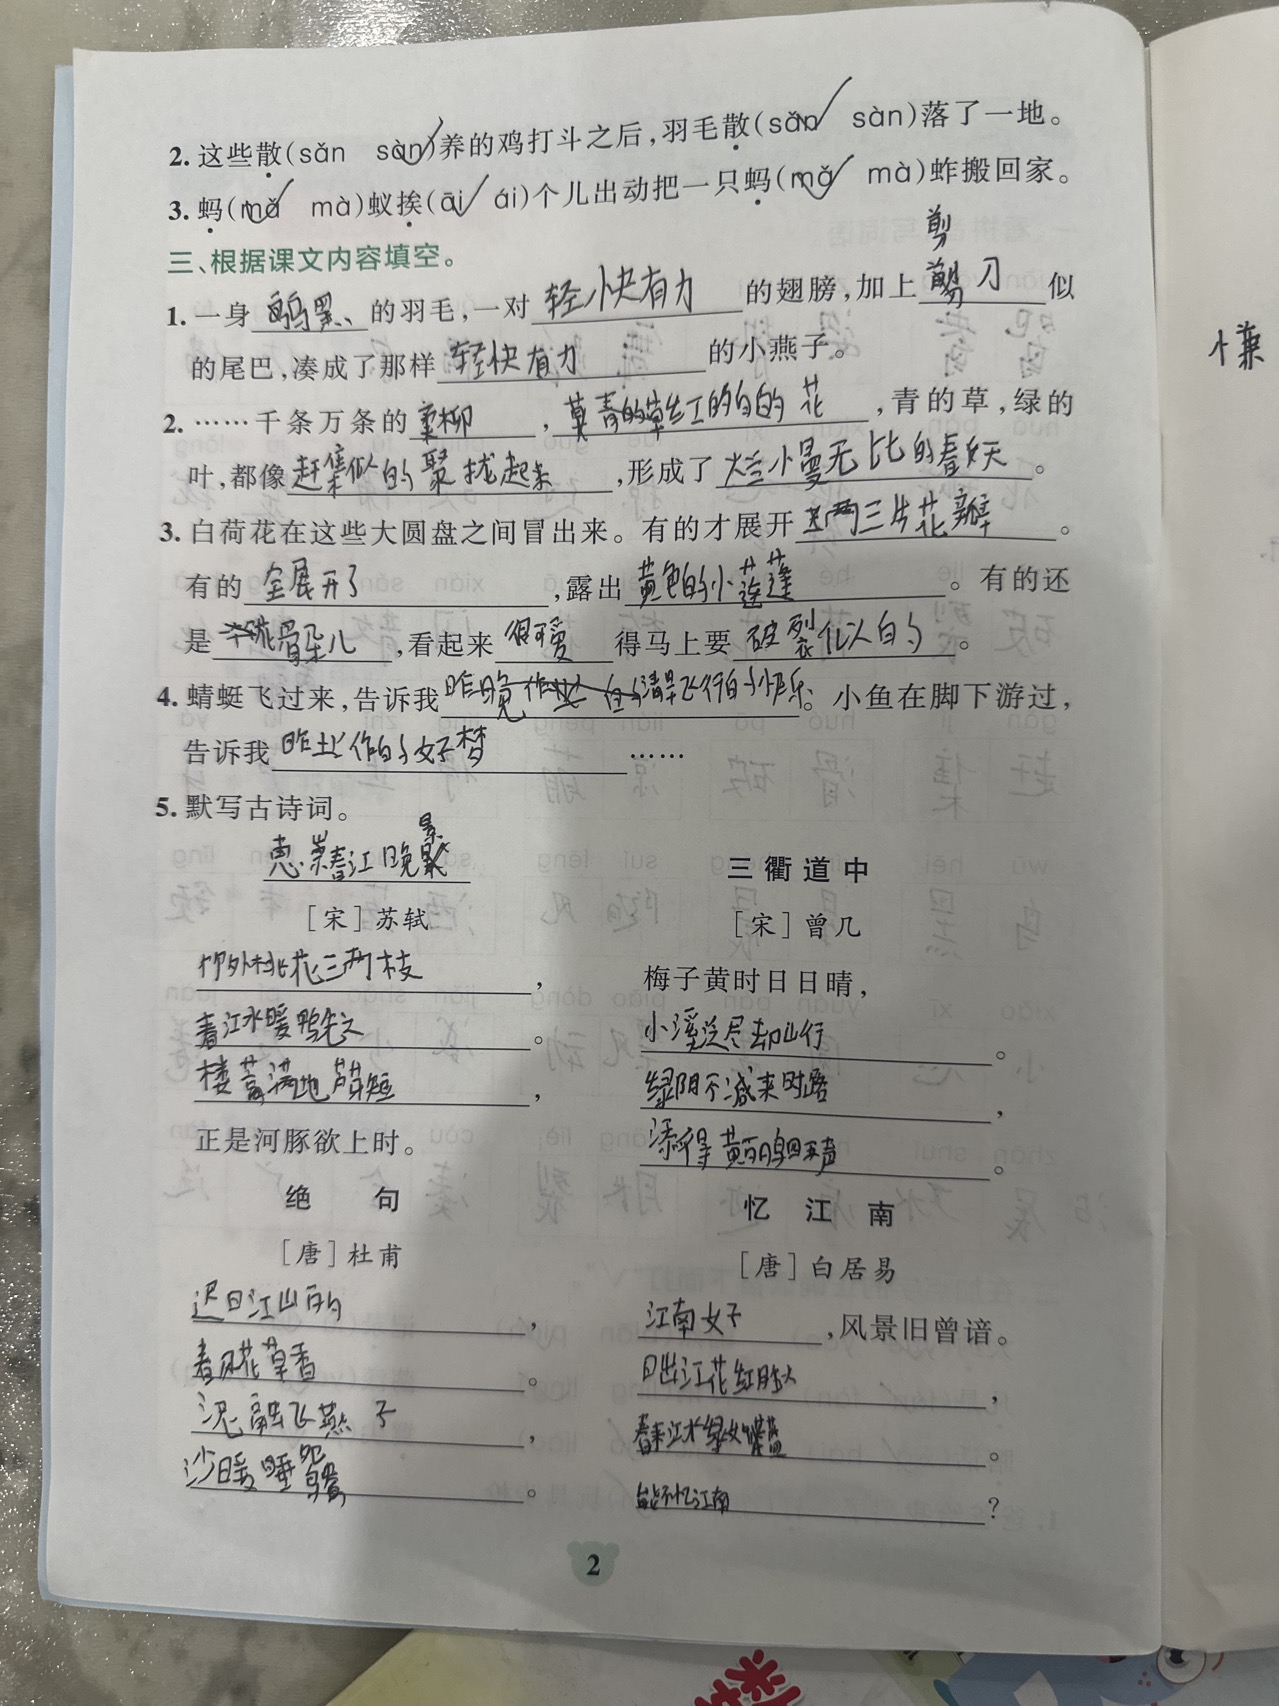 2. 这些散(sǎn sàn)养的鸡打斗之后,羽毛散(sǎn sàn)落了一地。
3. 蚂(mǎ mà)蚁挨(āi ái)个儿出动把一只蚂(mǎ mà)蚱搬回家。
剪
三、根据课文内容填空。
1. 一身 黑 的羽毛,一对 轻快有力 的翅膀,加上 剪刀 似
的尾巴,凑成了那样 轻快有力 的小燕子。
2. ……千条万条的 柔柳 , 青的草红的白的花 ,青的草,绿的
叶,都像 赶集似的聚拢起来 ,形成了 烂慢无比的春天 。
3. 白荷花在这些大圆盘之间冒出来。有的才展开 两三片花瓣 。
有的 全展开了 ,露出 黄色的小莲蓬 。有的还
是 骨朵儿 ,看起来 很可爱 得马上要 破裂似的 。
4. 蜻蜓飞过来,告诉我 清早飞行的快乐。小鱼在脚下游过,
告诉我 昨 作的好梦 ……
5. 默写古诗词。
惠崇春江晚景
三衢道中
[宋]苏轼
[宋]曾几
竹外桃花三两枝 ,
梅子黄时日日晴,
春江水暖鸭先 。
小溪泛尽却山行 。
楼蒿满地芦短 ,
绿阴不减来时路 ,
正是河豚欲上时。
添得黄鹂四五声 。
绝 句
忆 江 南
[唐]杜甫
[唐]白居易
迟日江山 ,
江南女子 ,风景旧曾谙。
春风花草香 。
日出江花红胜火 ,
泥融飞燕子 ,
春来江水绿如蓝 。
沙暖睡鸳 。
能不忆江南 ?
2
慊